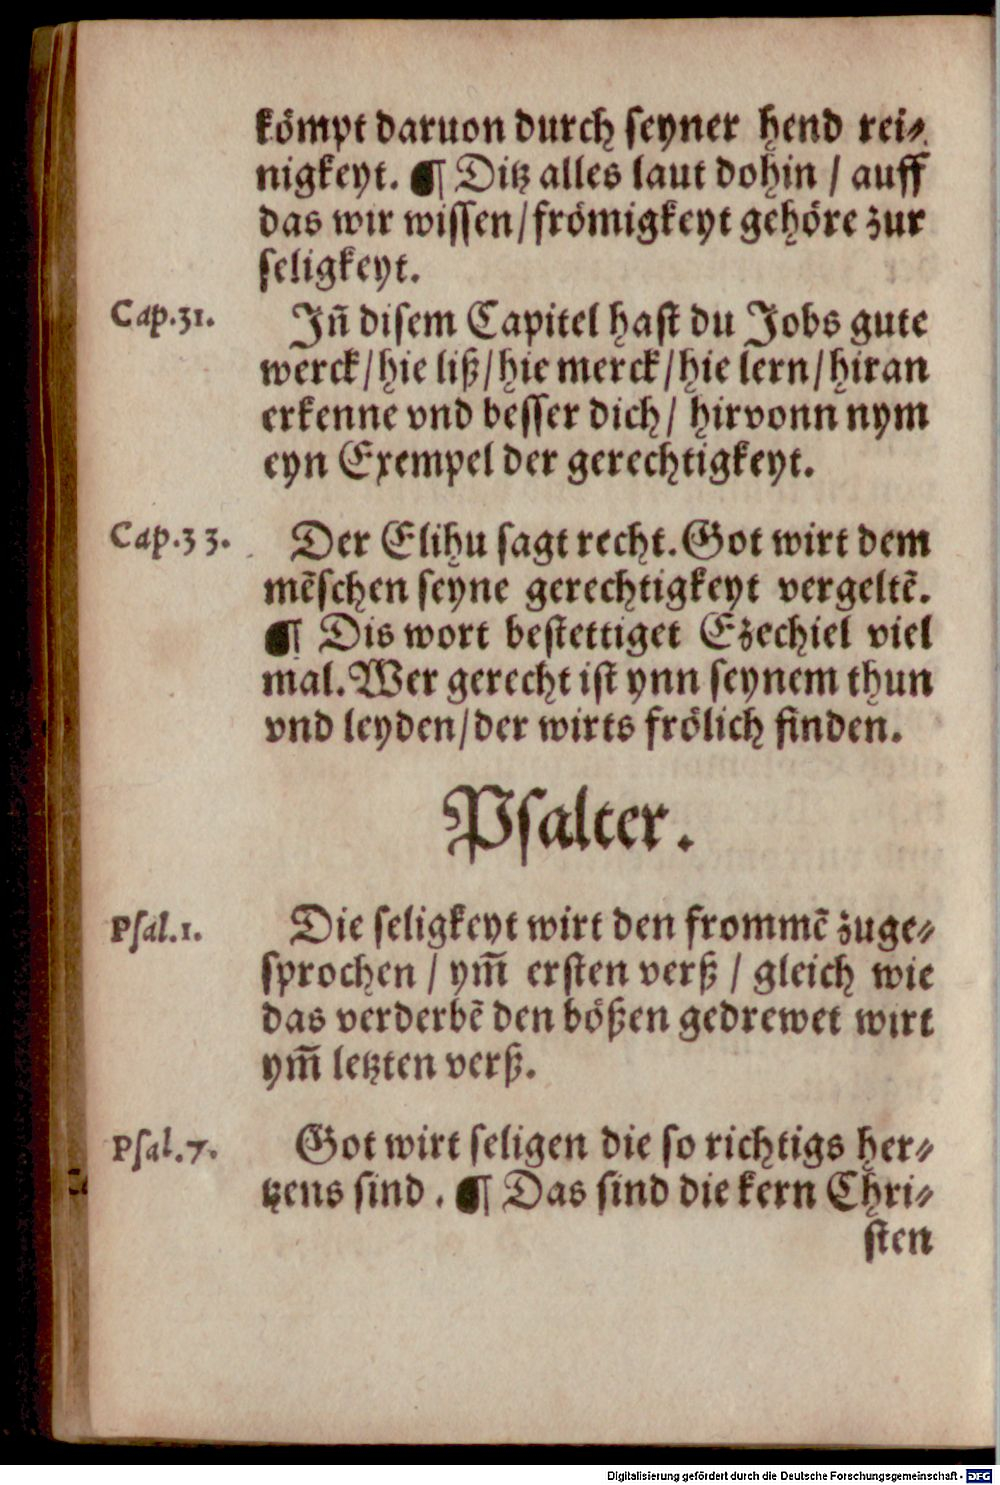 kömpt daruon durch seyner hend rei⸗
nigkeyt. ¶ Ditz alles laut dohin / auff
das wir wissen/frömigkeyt gehöre zur
seligkeyt.
Cap.31. Jñ disem Capitel hast du Jobs gute
werck/hie liß/hie merck/hie lern/hiran
erkenne vnd besser dich/ hirvonn nym
eyn Exempel der gerechtigkeyt.
Cap.33. Der Elihu sagt recht. Got wirt dem
mēschen seyne gerechtigkeyt vergeltē.
¶ Dis wort bestettiget Ezechiel viel
mal. Wer gerecht ist ynn seynem thun
vnd leyden/der wirts frölich finden.
Psalter.
Psal.1. Die seligkeyt wirt den frommē zuge⸗
sprochen / ym̄ ersten verß / gleich wie
das verderbē den bößen gedrewet wirt
ym̄ letzten verß.
Psal.7. Got wirt seligen die so richtigs her⸗
tzens sind. ¶ Das sind die kern Chri⸗
sten
Digitalisierung gefördert durch die Deutsche Forschungsgemeinschaft - DFG